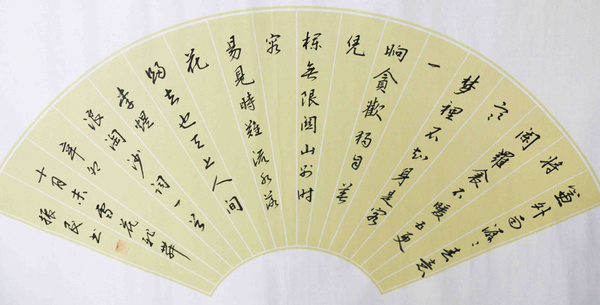 簾外雨潺潺春意
將
闌羅衾不暖五更
寒
夢裡不知身是客
一
晌貪歡獨自莫
凭
欄無限關山別時
容
易見時難流水落
花
歸去也天上人間
李煜
浪淘沙詞一首
辛卯
十月末雪花飛舞
振民書